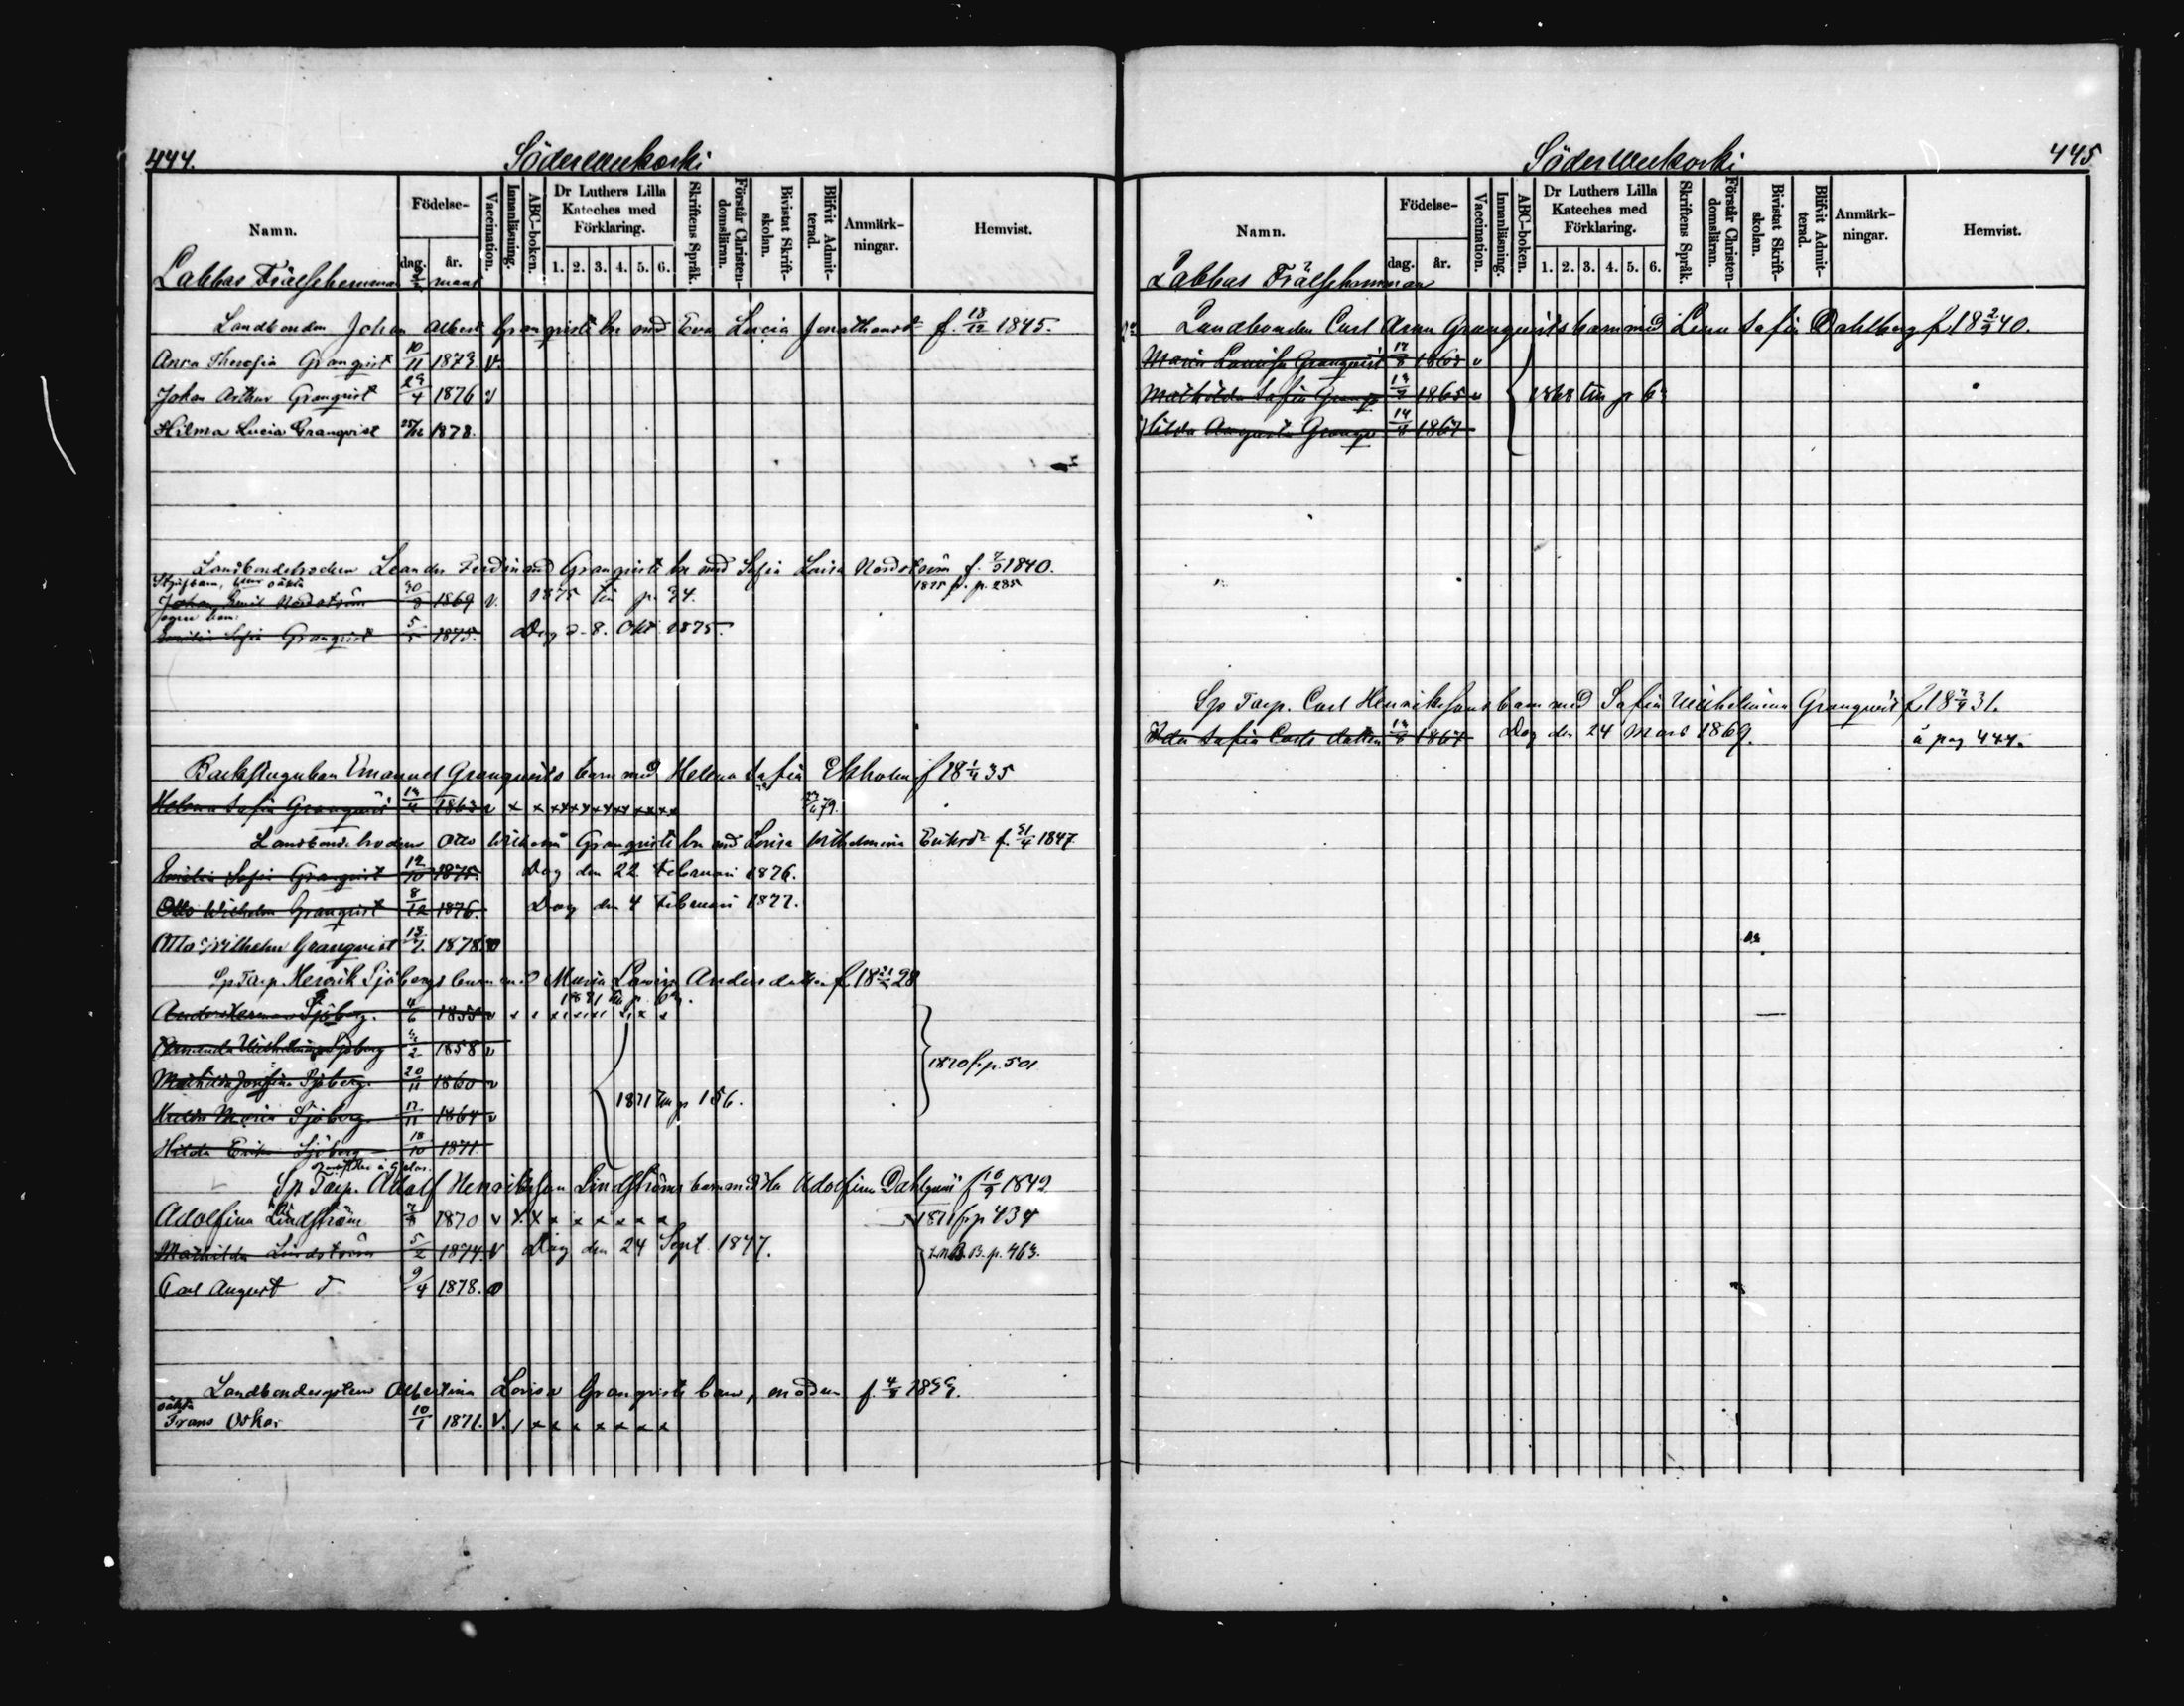 444.
Södermukoski
Namn.
Födelse-
dag.
år.
Vaccination.
Innanläsning.
ABC-boken.
Dr Luthers Lilla Kateches med Förklaring.
1. 2. 3. 4. 5. 6.
Skriftens Språk.
Förstår Christendomsläran.
Bivistat Skriftskolan.
Blifvit Admitterad.
Anmärkningar.
Hemvist.
Labbas Frälsehemman
Landbonden Johan Alberts Granqvists bn med Eva Lucia Jonathansdr f. 18/12 1845.
Anna Granqvist 10/11 1873 v.
Johan Arthur Granqvist 29/4 1876 v
Hilma Lucia Granqvist 1878.
Landbondebrodern Leander Ferdinand Granqvists bn med Sofia Lovisa Nordström f. 1840.
oäkta
Johan Emil Nordström 30/8 1869 v. 1875 till p. 94. 1875 fr. p. 285
Emilia Sofia Granqvist 5/5 1875. Dog d. 8. Okt. 1875.
Emanuel Granqvists barn med Helena Sofia Ekholm f 18 35
Helena Sofia Granqvist 1863 v x x x x x x x x x x 79.
Landbondebrodern Otto Wilhelm Granqvists bn med Lovisa Wilhelmina Eriksdr f. 1847
Emilia Sofia Granqvist 12/10 1875. Dog den 22 Februari 1876.
Otto Wilhelm Granqvist 8/12 1876. Dog den 4 Februari 1877.
Otto Wilhelm Granqvist 13/7. 1878. v
Sp Torp. Henrik Sjöbergs barn med Maria Lovisa Andersdotter f. 18 28
Anders Herman Sjöberg. 4/6 1855 v x x x x x x x x
Amanda Wilhelmina Sjöberg 1858 v
Mathilda Josefina Sjöberg. 20/11 1860 v
1870 fr. p. 501
Hulda Maria Sjöberg 17/11 1864 v 1871 till p 156.
Hilda Erika Sjöberg 18/10 1871.
Sp Torp. Adolf Henriksson Lindströms barn med Adolfina Dahlqvist f 10/9 1842
Adolfina Lindström 7/8 1870 v x x x x x x x x 1871 fr p 434
Mathilda Lindström 5/2 1874. v Dog den 24 Sept. 1877. p. 463.
Carl August d 9/4 1878. v
Albertina Lovisa Granqvists barn, modern f.
oäkta
Frans Oskar 10/1 1871. v. x x x x x x x
Södermukoski
445
Namn.
Födelse-
dag.
år.
Vaccination.
Innanläsning.
ABC-boken.
Dr Luthers Lilla Kateches med Förklaring.
1. 2. 3. 4. 5. 6.
Skriftens Språk.
Förstår Christendomsläran.
Bivistat Skriftskolan.
Blifvit Admitterad.
Anmärkningar.
Hemvist.
Labbas Frälsehemman
Landbonden Carl Aron Granqvists barn med Lena Sofia Dahlberg f 18 2/9 40.
Maria Lovisa Granqvist 17/8 1863 v
Mathilda Sofia Granqv 1865 v 1868 till p 6
Hilda Augusta Granqv 14/8 1867
Sp Torp. Carl Henrikssons barn med Sofia Wilhelmina Granqvist f 18 31.
Ida Sofia Carls dotter 1867 Dog den 24 Mars 1869. å pag 444.